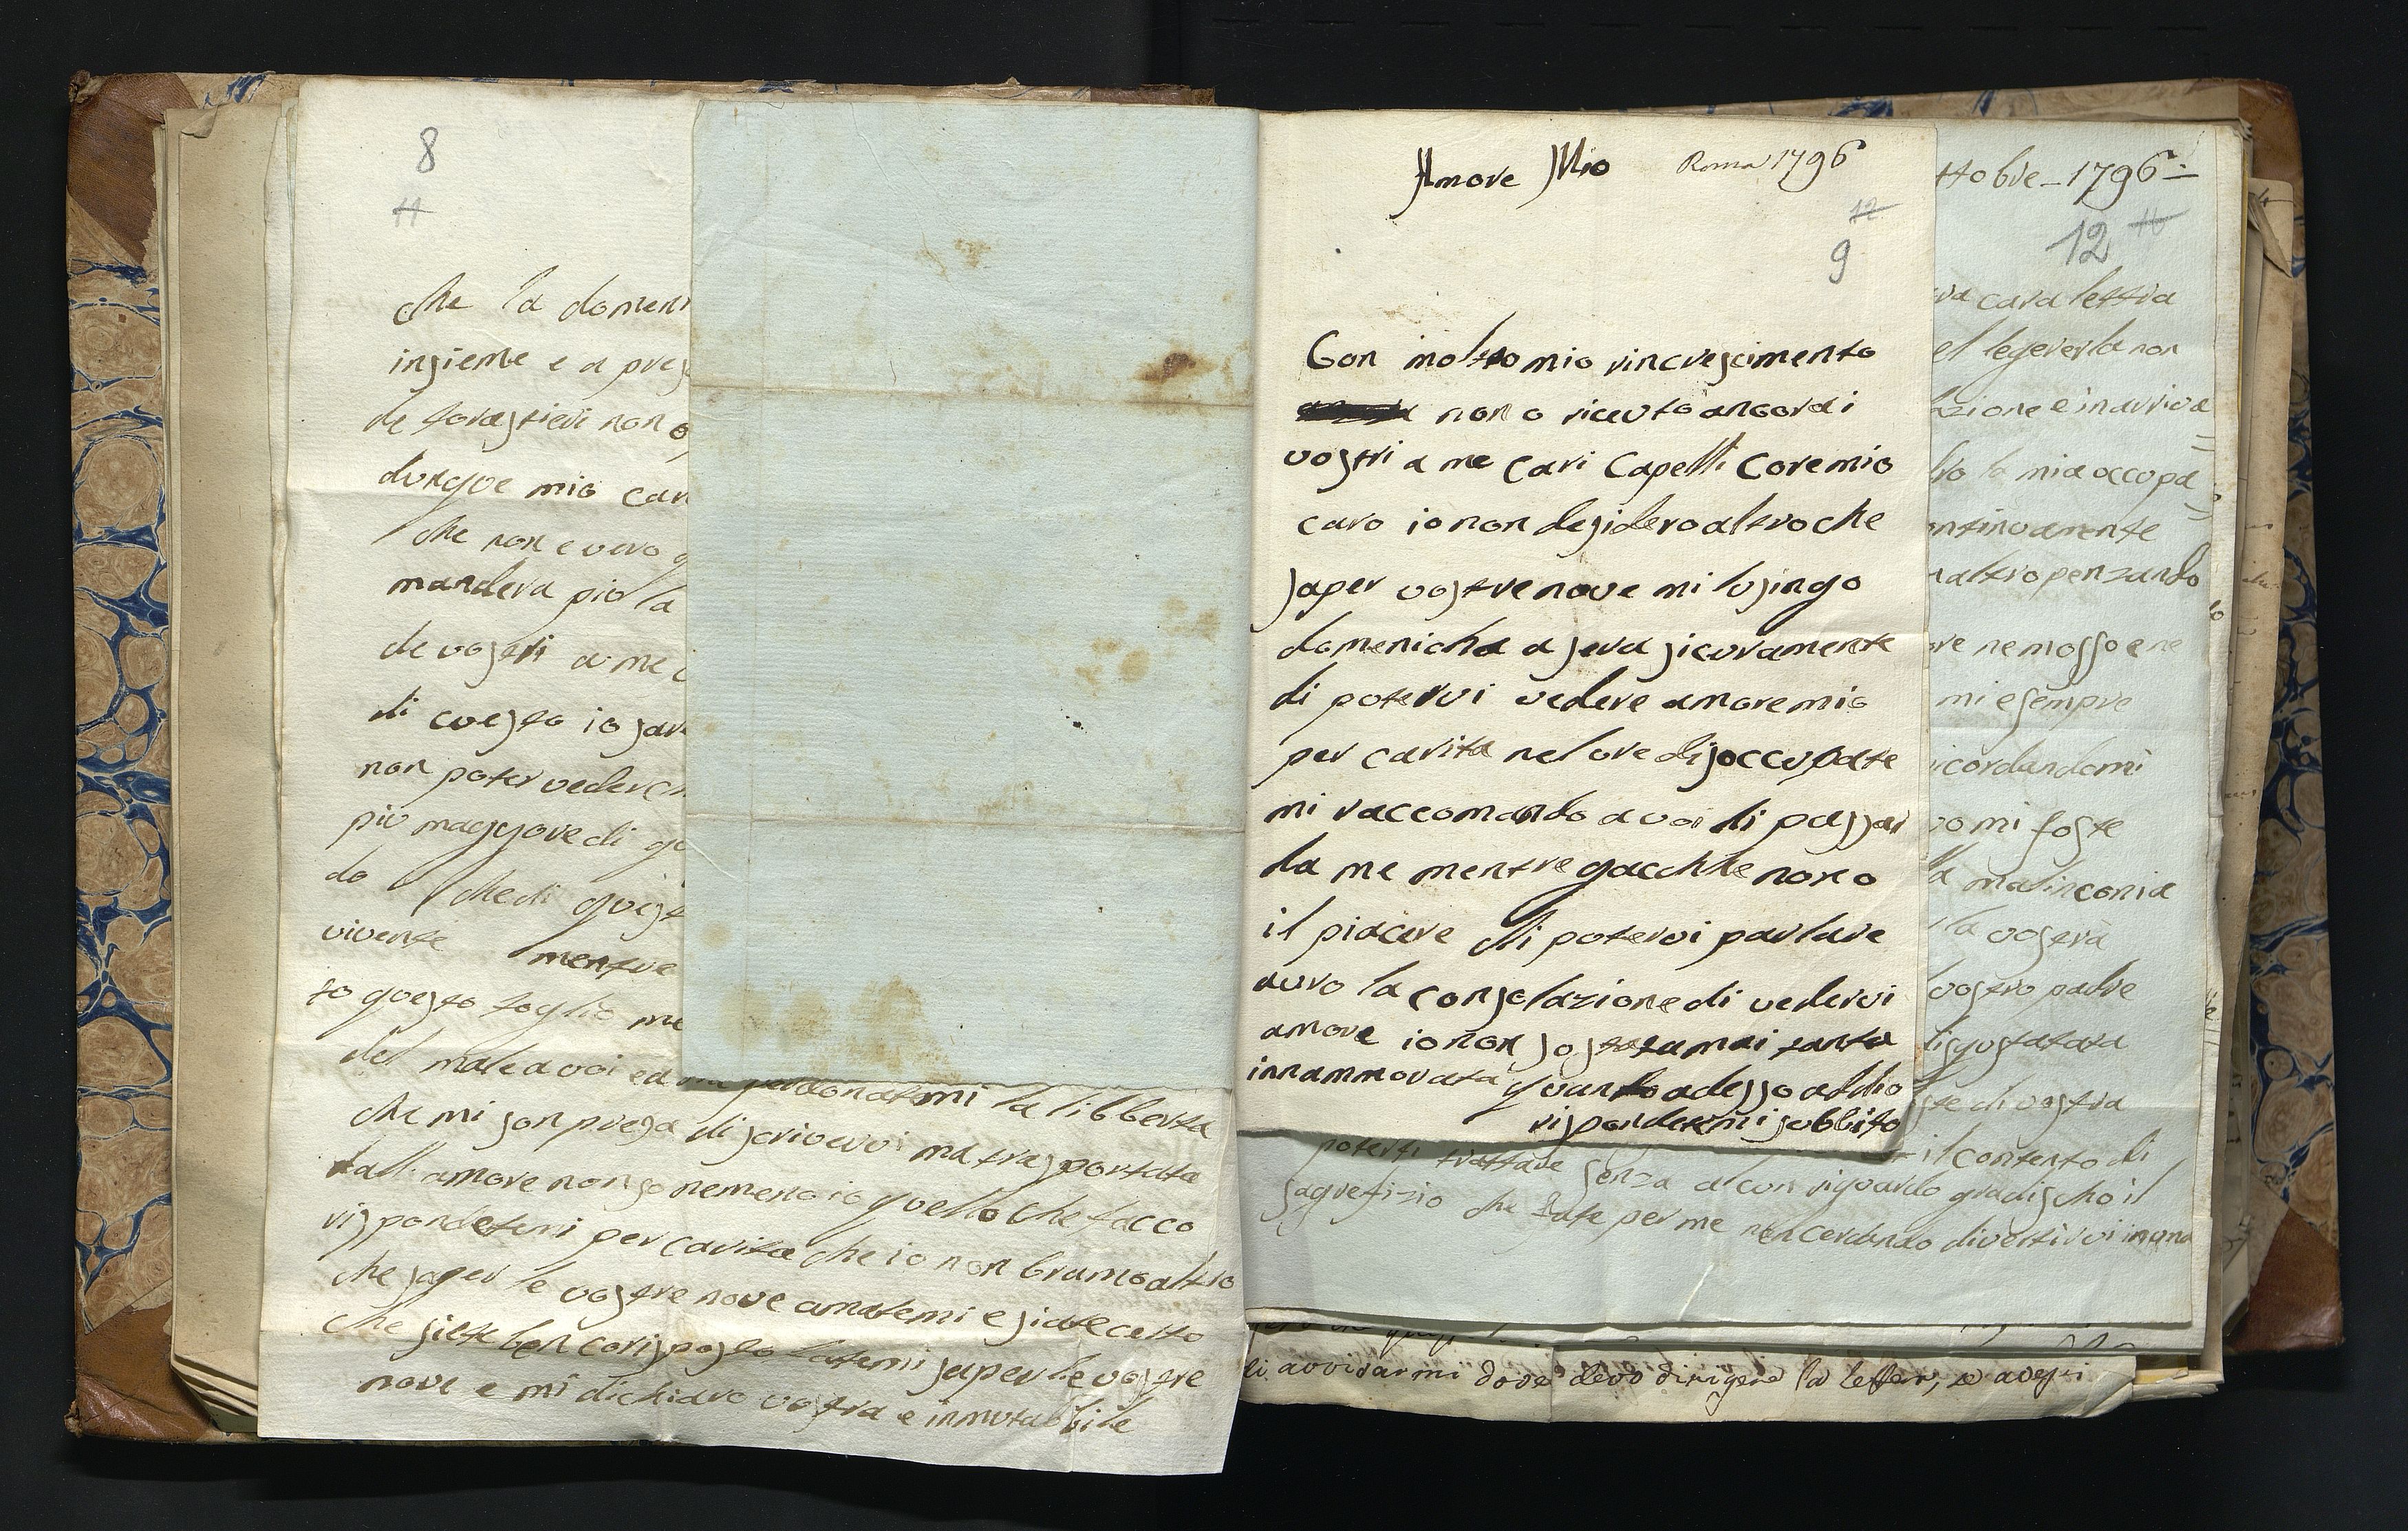 8
11
che la domeni
insieme e a pres
de forastieri non o
dunque mio car
che non e vero q
mandera piu la
de vostri a me c
di cuesto io sar
non poter vedere
piu maggore di qu
do che di quist
vivente mentre
to questo foglio me
del male a voi ed perdonatemi la libberta
che mi son presa di scrivervi ma trasportata
dall amore non so nemeno io quello che facco
rispondetemi per carita che io non bramo altro
che saper le vostre nove amatemi e siate certo
che siete ben corisposto fatemi saper le vostre
nove e mi dichiaro vostra e inmutabbile
Amore Mio Roma 1796
12
9
Con molto mio rincrescimento
non o riceuto ancora i
vostri a me cari Capelli Core mio
caro io non desidero altro che
saper vostre nove mi lusingo
domenicha a sera sicuramente
di potervi vedere amore mio
per carita nel ore disoccupate
mi raccomando a voi di passar
da me mentre gacchhe non o
il piacere di potervi parlare
auro la consolazione di vedervi
amore io non so stata mai tanta
innammorata quanto adesso addio
rispondetemi subbito
ttobre - 1796
12 16
ra cara lettra
el legererla non
lazione e inarriva
tro la mia occupa
ontinuamente
naltro penzando
ore nemosso e ne
mi e sempre
icordandomi
vo mi foste
la malinconia
la vostra
vostro padre
disgustatata
ste di vostra
il contento di
potersi trattare senza alcun riguardo gradischo il
sagrefizio che fate per me non cercando divertirvi in una
di avvisarmi dove devo dirigere la letter, e avessi